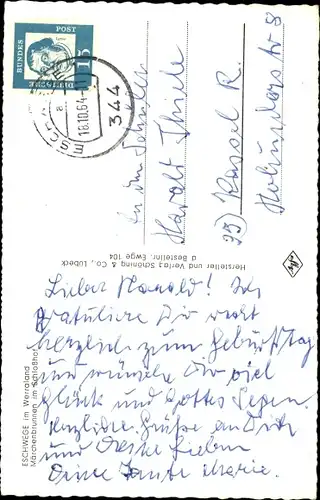 DEUTSCHE
BUNDES
POST
15
ESCHWEGE
18.10.64
a
344
An den Schüler
Harald Thiele
35) Kassel R.
8
Hersteller und Verlag Schöning & Co., Lübeck
Bestellnr. Ewge 104
ESCHWEGE im Werraland
Märchenbrunnen im Schloßhof
Lieber Harald! Ich
gratuliere Dir recht
herzlich zum Geburtstag
und wünsche Dir viel
Glück und Gottes Segen.
Herzliche Grüße an Dich
und Deine Lieben
Deine Tante